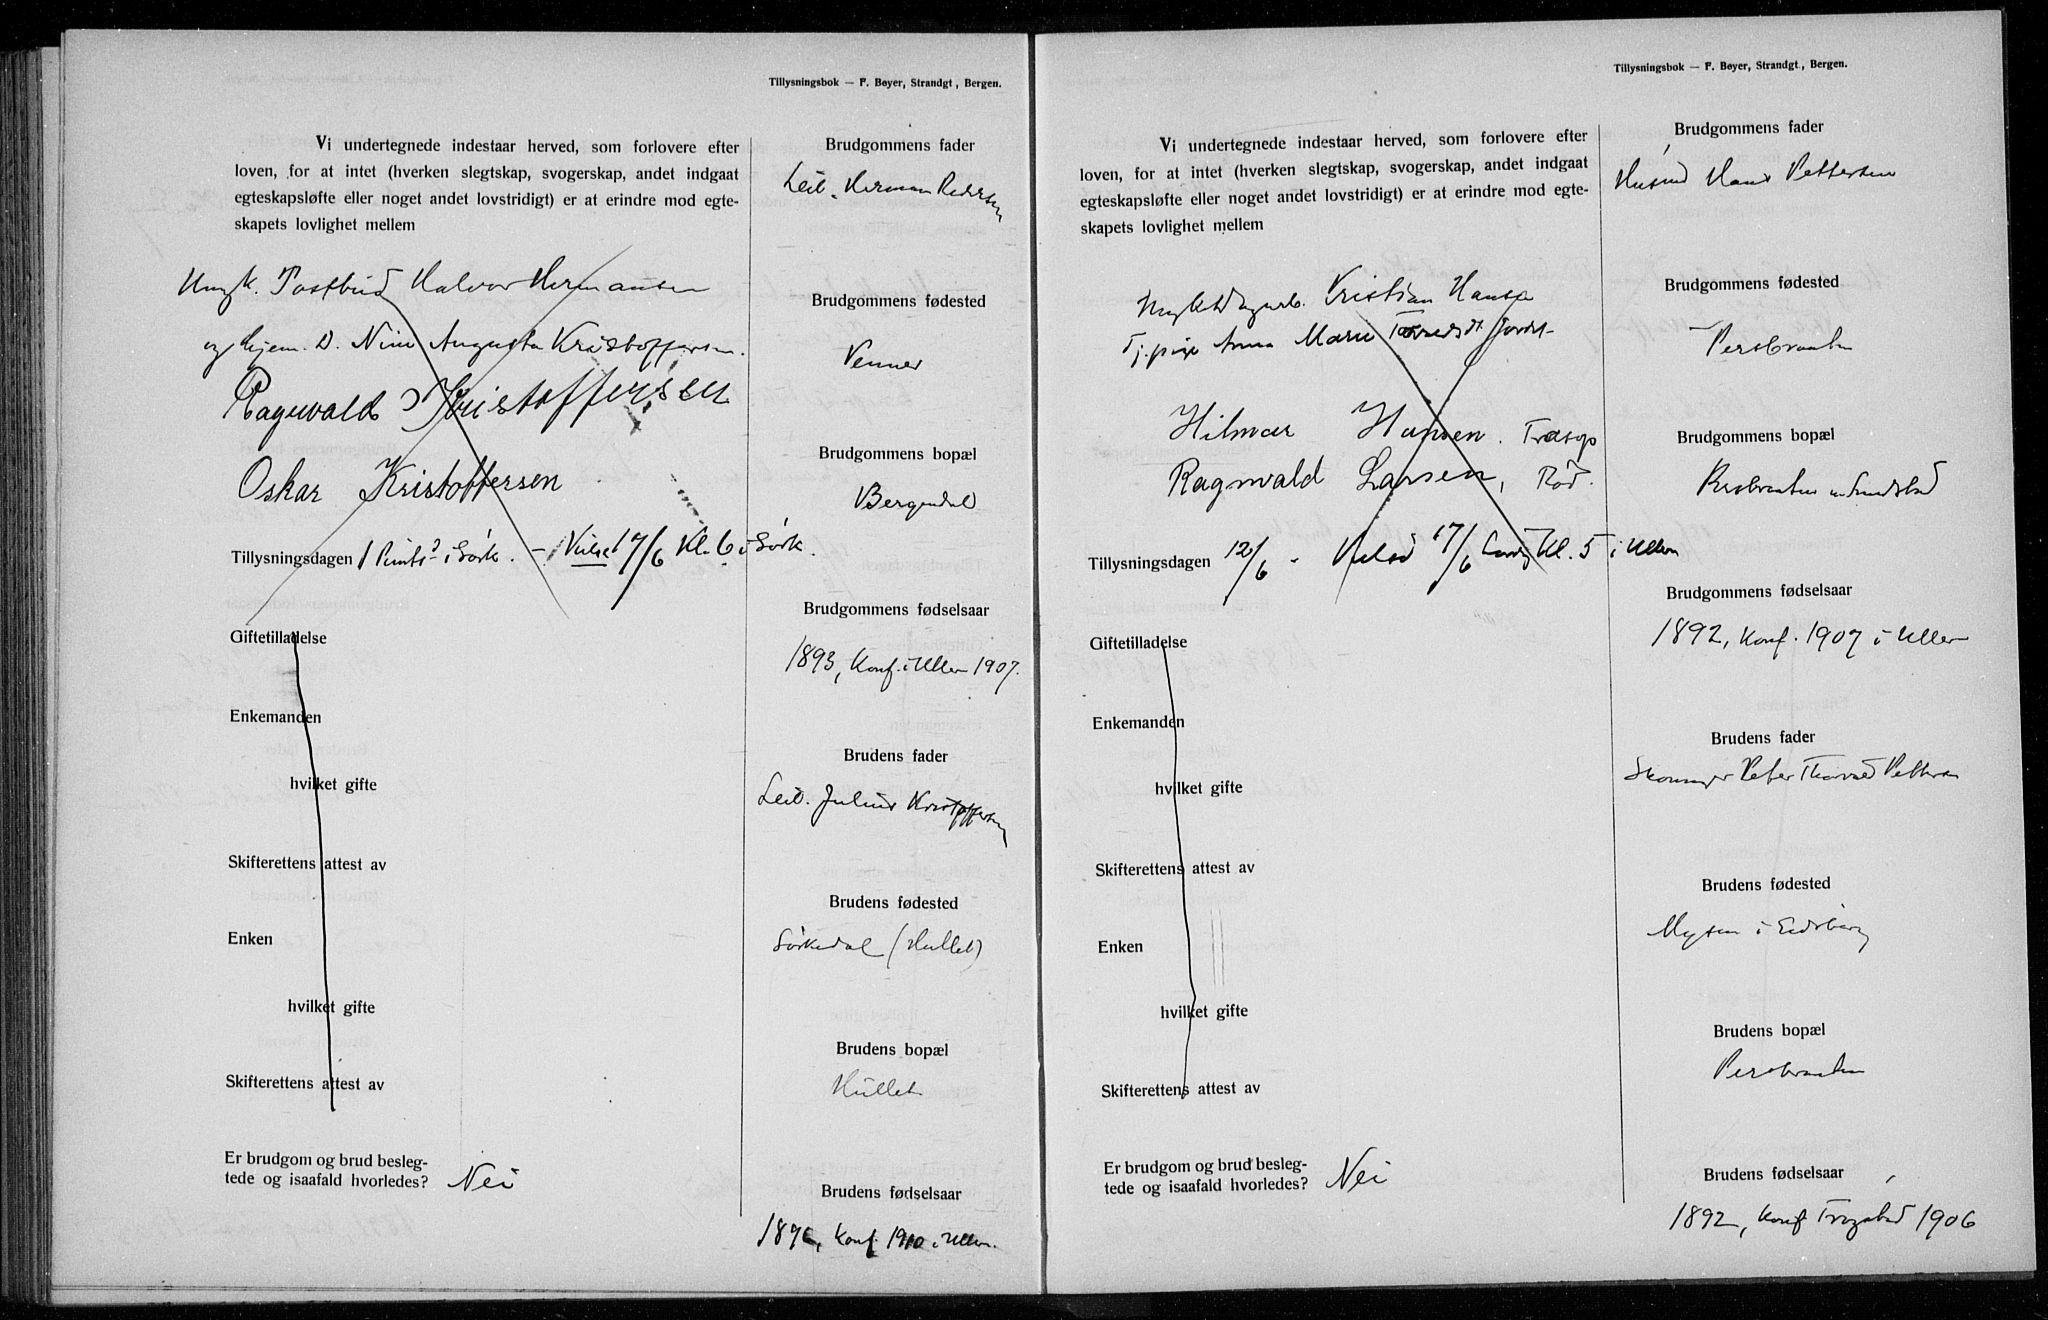 Tillysningsbok — F. Beyer, Strandgt., Bergen.
Vi undertegnede indestaar herved, som forlovere efter
loven, for at intet (hverken slegtskap, svogerskap, andet indgaat
egteskapsløfte eller noget andet lovstridigt) er at erindre mod egte-
skapets lovlighet mellem
Ungk. Postbud Halvor Hermansen
og hjem. D. Nini Augusta Kristoffersen.
Ragnvald Kristoffersen
Oskar Kristoffersen
Tillysningsdagen 1 Pints? i Sørk. – Vielse 17/6 Kl. 6 i Sørk.
Giftetilladelse
Enkemanden
hvilket gifte
Skifterettens attest av
Enken
hvilket gifte
Skifterettens attest av
Er brudgom og brud besleg-
tede og isaafald hvorledes? Nei
Brudgommens fader
Leil. Herman
Brudgommens fødested
Venner
Brudgommens bopæl
Bergendal
Brudgommens fødselsaar
1893, Konf. i Ullern 1907.
Brudens fader
Leil. Julius Kristoffersen
Brudens fødested
Sørkedal (Hullet)
Brudens bopæl
Hullet
Brudens fødselsaar
1896, Konf. 1910 i Ullern.
Tillysningsbok — F. Beyer, Strandgt., Bergen.
Vi undertegnede indestaar herved, som forlovere efter
loven, for at intet (hverken slegtskap, svogerskap, andet indgaat
egteskapsløfte eller noget andet lovstridigt) er at erindre mod egte-
skapets lovlighet mellem
Kristian Hansen
Tj. pige Anna Marie
Hilmar Hansen.
Ragnvald Larsen, Rød.
Tillysningsdagen 12/6 – Vielse 17/6 Kl. 5 i Ullern
Giftetilladelse
Enkemanden
hvilket gifte
Skifterettens attest av
Enken
hvilket gifte
Skifterettens attest av
Er brudgom og brud besleg-
tede og isaafald hvorledes? Nei
Brudgommens fader
Husmd Hans Pettersen
Brudgommens fødested
Persbraaten
Brudgommens bopæl
Persbraaten
Brudgommens fødselsaar
1892, Konf. 1907 i Ullern
Brudens fader
Skomager Peter Thorvald Pettersen
Brudens fødested
Mysen i Eidsberg
Brudens bopæl
Persbraaten
Brudens fødselsaar
1892, Konf Trøgstad 1906